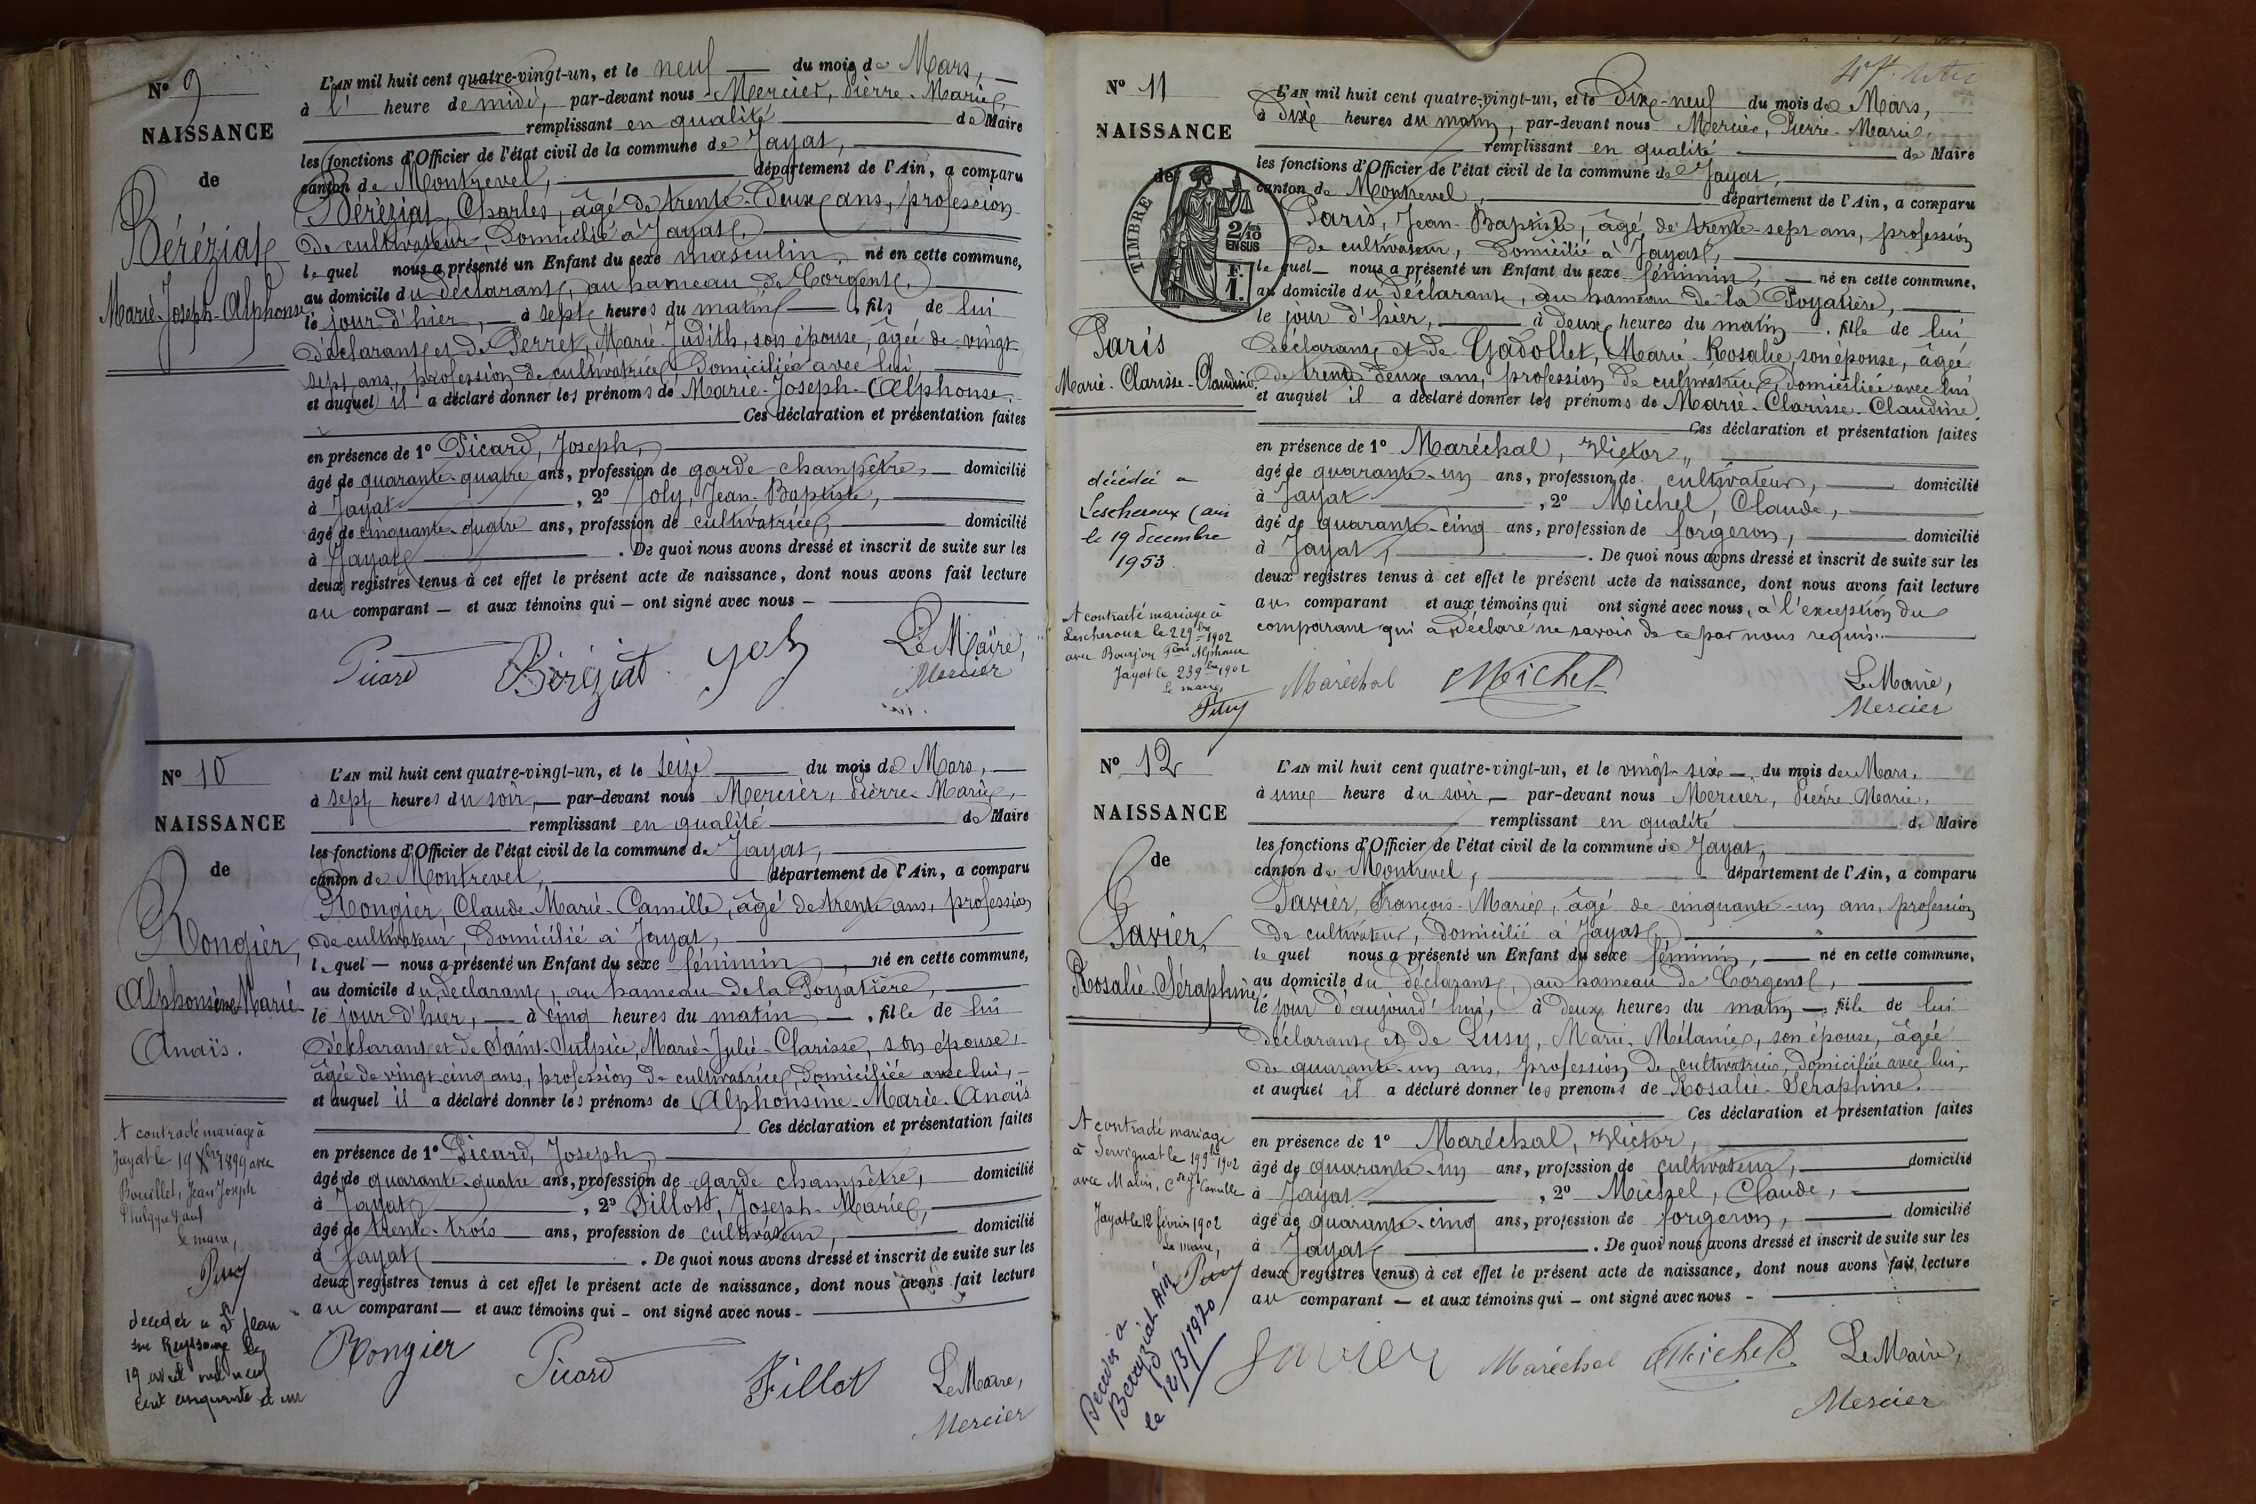 N° 9
NAISSANCE
de
Béréziat
Marie-Joseph-Alphonse
L'AN mil huit cent quatre-vingt-un, et le neuf du mois de Mars,
à l' heure de midi, par-devant nous Mercier, Pierre-Marie,
remplissant en qualité de Maire
les fonctions d'Officier de l'état civil de la commune de Jayat,
canton de Montrevel, département de l'Ain, a comparu
Béréziat, Charles, âgé de trente-deux ans, profession
de cultivateur, domicilié à Jayat,
lequel nous a présenté un Enfant du sexe masculin, né en cette commune,
au domicile du déclarant, au hameau de Corgent,
le jour d'hier, à sept heures du matin, fils de lui
déclarant et de Perret, Marie-Judith, son épouse, âgée de vingt
sept ans, profession de cultivatrice domiciliée avec lui,
et auquel il a déclaré donner les prénoms de Marie-Joseph-Alphonse.
Ces déclaration et présentation faites
en présence de 1° Picard, Joseph,
âgé de quarante-quatre ans, profession de garde-champêtre, domicilié
à Jayat, 2° Joly, Jean-Baptiste,
âgé de cinquante-quatre ans, profession de cultivatrice, domicilié
à Jayat. De quoi nous avons dressé et inscrit de suite sur les
deux registres tenus à cet effet le présent acte de naissance, dont nous avons fait lecture
au comparant — et aux témoins qui — ont signé avec nous —
Picard Béréziat Joly Le Maire,
Mercier
N° 10
NAISSANCE
de
Rongier,
Alphonsine Marie
Anaïs.
A contracté mariage à
Jayat le 19 Xbre 1899 avec
Bouillet, Jean Joseph
le maire,
décédée à St Jean
sur Reyssouze le
19 avril mil neuf
cent cinquante et un
L'AN mil huit cent quatre-vingt-un, et le seize du mois de Mars,
à sept heures du soir, par-devant nous Mercier, Pierre-Marie,
remplissant en qualité de Maire
les fonctions d'Officier de l'état civil de la commune de Jayat,
canton de Montrevel, département de l'Ain, a comparu
Rongier, Claude-Marie-Camille, âgé de trente ans, profession
de cultivateur, domicilié à Jayat,
lequel — nous a présenté un Enfant du sexe féminin, né en cette commune,
au domicile du déclarant, au hameau de la Poyatière,
le jour d'hier, — à cinq heures du matin —, fille de lui
déclarant et de Saint-Sulpice, Marie-Julie-Clarisse, son épouse,
âgée de vingt-cinq ans, profession de cultivatrice, domiciliée avec lui,
et auquel il a déclaré donner les prénoms de Alphonsine-Marie-Anaïs
Ces déclaration et présentation faites
en présence de 1° Picard, Joseph,
âgé de quarante-quatre ans, profession de garde champêtre, domicilié
à Jayat, 2° Pillot, Joseph-Marie,
âgé de trente-trois ans, profession de cultivateur, domicilié
à Jayat. De quoi nous avons dressé et inscrit de suite sur les
deux registres tenus à cet effet le présent acte de naissance, dont nous avons fait lecture
au comparant — et aux témoins qui — ont signé avec nous —
Rongier Picard Pillot Le Maire,
Mercier
N° 11
NAISSANCE
de
TIMBRE
2/10 EN SUS
F. 1.
Paris
Marie-Clarisse-Claudine.
décédée à
Lescheroux (Ain
le 19 décembre
1953
A contracté mariage à
Lescheroux le 22 9bre 1902
avec Bourjon Alphonse
Jayat le 23 9bre 1902
Le maire,
L'AN mil huit cent quatre-vingt-un, et le Dix-neuf du mois de Mars,
à Dix heures du matin, par-devant nous Mercier, Pierre-Marie,
remplissant en qualité de Maire
les fonctions d'Officier de l'état civil de la commune de Jayat,
canton de Montrevel, département de l'Ain, a comparu
Paris, Jean-Baptiste, âgé de trente-sept ans, profession
de cultivateur, domicilié à Jayat,
lequel — nous a présenté un Enfant du sexe féminin, — né en cette commune,
au domicile du déclarant, au hameau de la Poyatière,
le jour d'hier, à deux heures du matin, fille de lui
déclarant et de Gadollet, Marie-Rosalie, son épouse, âgée
de trente deux ans, profession de cultivatrice, domiciliée avec lui
et auquel il a déclaré donner les prénoms de Marie-Clarisse-Claudine.
Ces déclaration et présentation faites
en présence de 1° Maréchal, Victor,
âgé de quarante-un ans, profession de cultivateur, domicilié
à Jayat, 2° Michel, Claude,
âgé de quarante-cinq ans, profession de forgeron, domicilié
à Jayat,. De quoi nous avons dressé et inscrit de suite sur les
deux registres tenus à cet effet le présent acte de naissance, dont nous avons fait lecture
au comparant et aux témoins qui ont signé avec nous, à l'exception du
comparant qui a déclaré ne savoir de ce par nous requis.
Maréchal Michel Le Maire,
Mercier
N° 12
NAISSANCE
de
Savier,
Rosalie Séraphine
A contracté mariage
à Servignat le 1902
avec Malin, Camille
Jayat le 12 février 1902
Le maire,
Décédée à
Bereyziat Ain
le 12/3/1970
L'AN mil huit cent quatre-vingt-un, et le vingt-six — du mois de Mars,
à une heure du soir, — par-devant nous Mercier, Pierre-Marie,
remplissant en qualité de Maire
les fonctions d'Officier de l'état civil de la commune de Jayat,
canton de Montrevel, département de l'Ain, a comparu
Savier, François-Marie, âgé de cinquante-un ans, profession
de cultivateur, domicilié à Jayat,
lequel nous a présenté un Enfant du sexe féminin, — né en cette commune,
au domicile du déclarant, au hameau de Corgent,
le jour d'aujourd'hui, à deux heures du matin —, fille de lui
déclarant et de Lusy, Marie-Mélanie, son épouse, âgée
de quarante-un ans, profession de cultivatrice, domiciliée avec lui,
et auquel il a déclaré donner les prénoms de Rosalie-Séraphine.
Ces déclaration et présentation faites
en présence de 1° Maréchal, Victor,
âgé de quarante-un ans, profession de cultivateur, domicilié
à Jayat, 2° Michel, Claude,
âgé de quarante-cinq ans, profession de forgeron, domicilié
à Jayat. De quoi nous avons dressé et inscrit de suite sur les
deux registres tenus à cet effet le présent acte de naissance, dont nous avons fait lecture
au comparant — et aux témoins qui — ont signé avec nous —
Savier Maréchal Michel Le Maire,
Mercier